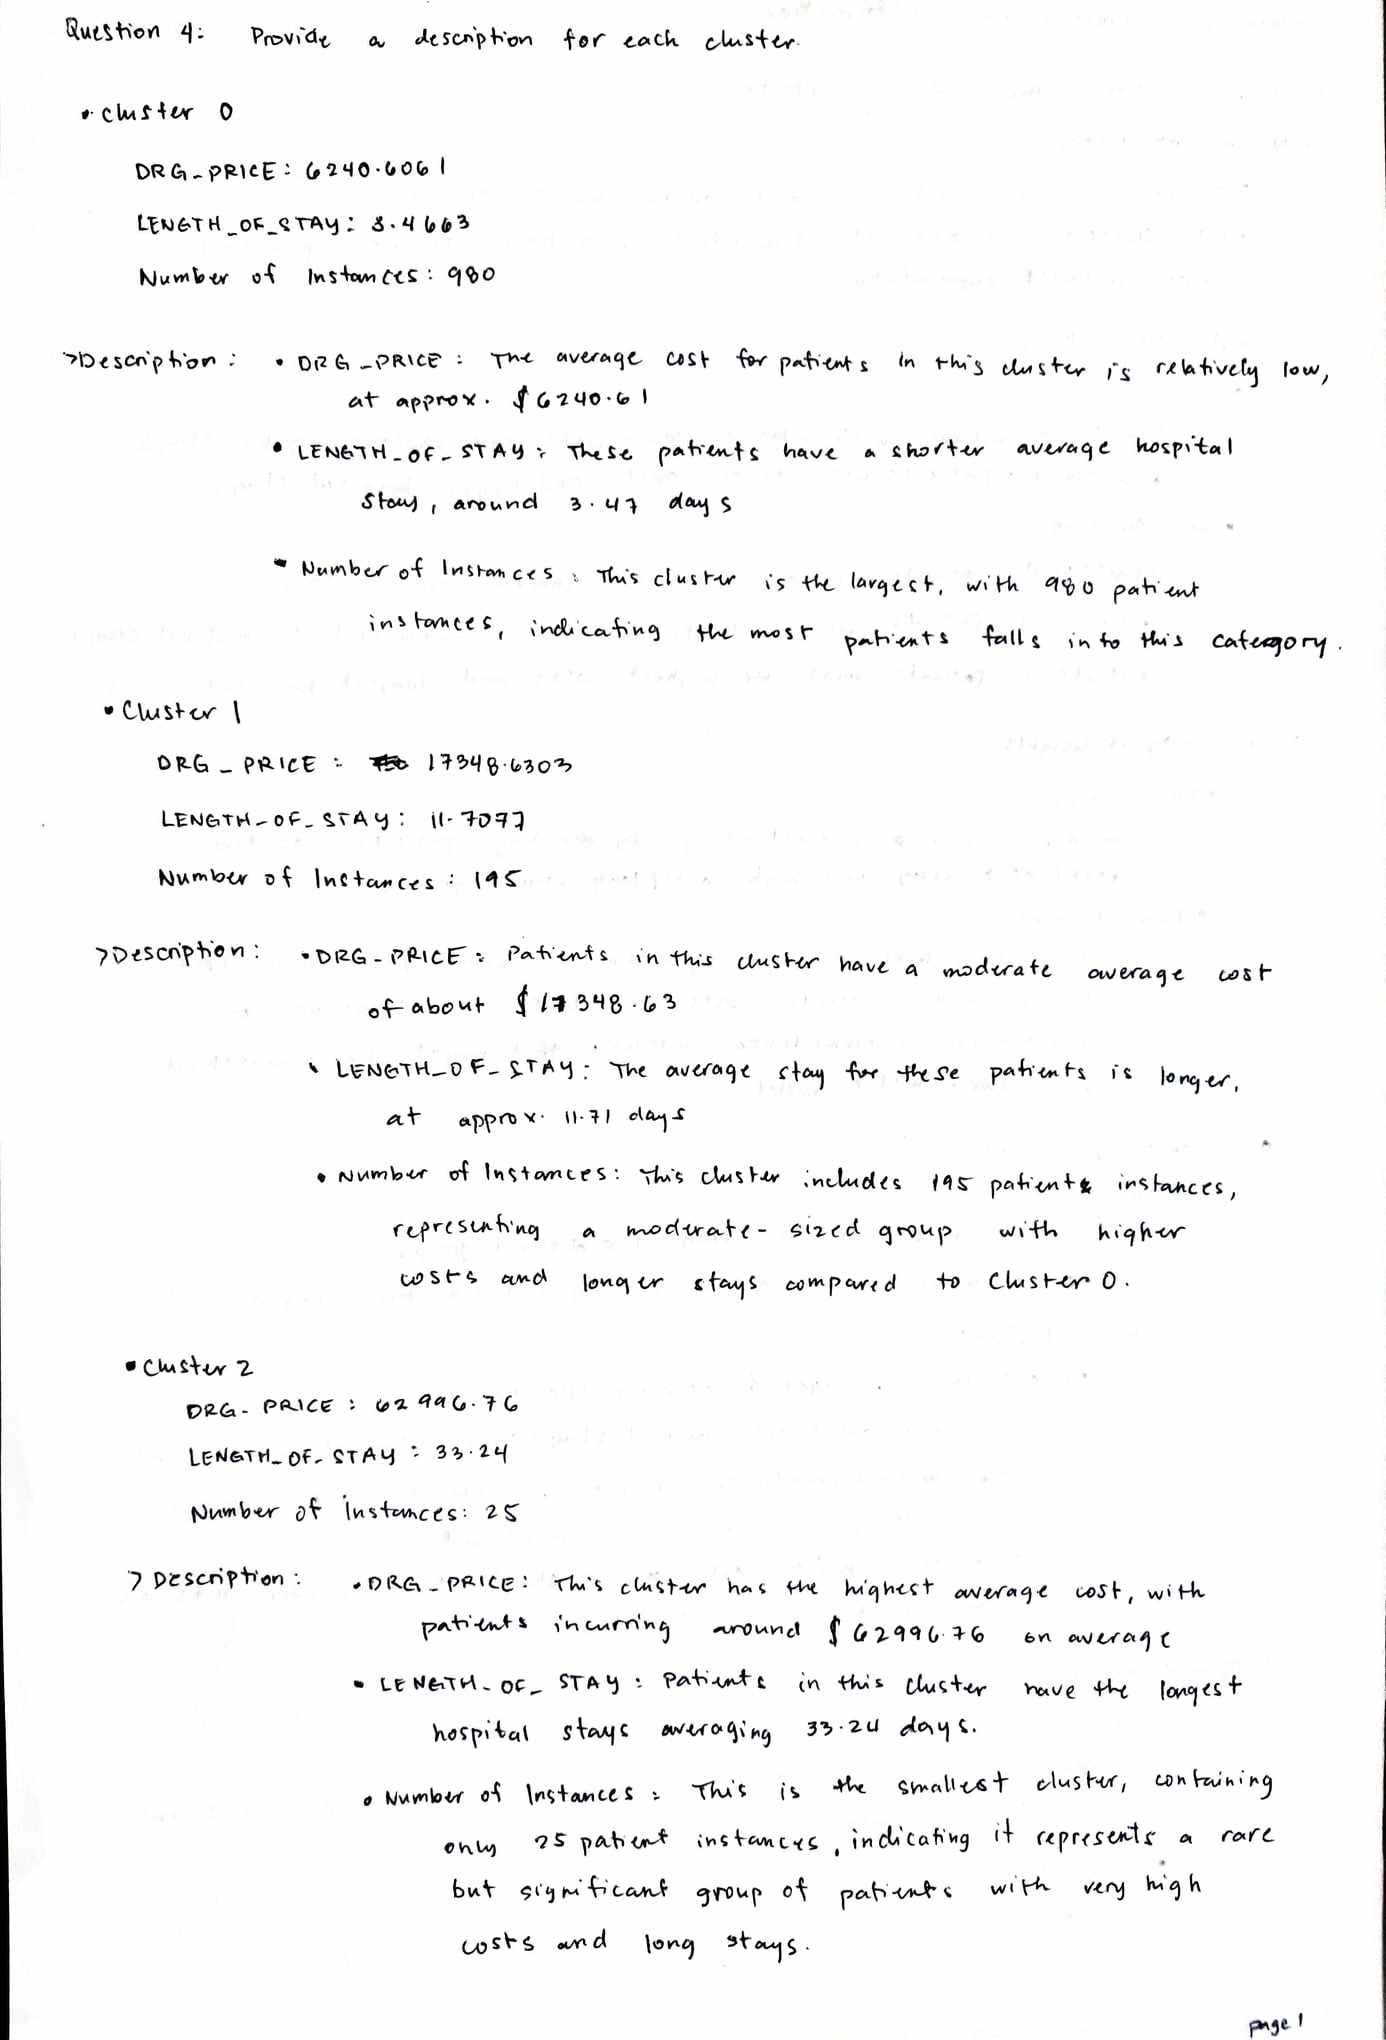 Question 4: Provide a description for each cluster.
• Cluster 0
DRG_PRICE: 6240.6061
LENGTH_OF_STAY: 3.4663
Number of Instances: 980
>Description: • DRG_PRICE: The average cost for patients in this cluster is relatively low,
at approx. $6240.61
• LENGTH_OF_STAY: These patients have a shorter average hospital
stay, around 3.47 days
• Number of Instances: This cluster is the largest, with 980 patient
instances, indicating the most patients falls into this catergory.
• Cluster 1
DRG_PRICE: 17348.6303
LENGTH_OF_STAY: 11.7077
Number of Instances: 195
>Description: • DRG_PRICE: Patients in this cluster have a moderate average cost
of about $17348.63
• LENGTH_OF_STAY: The average stay for these patients is longer,
at approx. 11.71 days
• Number of Instances: This cluster includes 195 patient instances,
representing a moderate-sized group with higher
costs and longer stays compared to Cluster 0.
• Cluster 2
DRG_PRICE: 62996.76
LENGTH_OF_STAY: 33.24
Number of instances: 25
> Description: • DRG_PRICE: This cluster has the highest average cost, with
patients incurring around $62996.76 on average
• LENGTH_OF_STAY: Patients in this cluster have the longest
hospital stays averaging 33.24 days.
• Number of Instances: This is the smallest cluster, containing
only 25 patient instances, indicating it represents a rare
but significant group of patients with very high
costs and long stays.
page 1